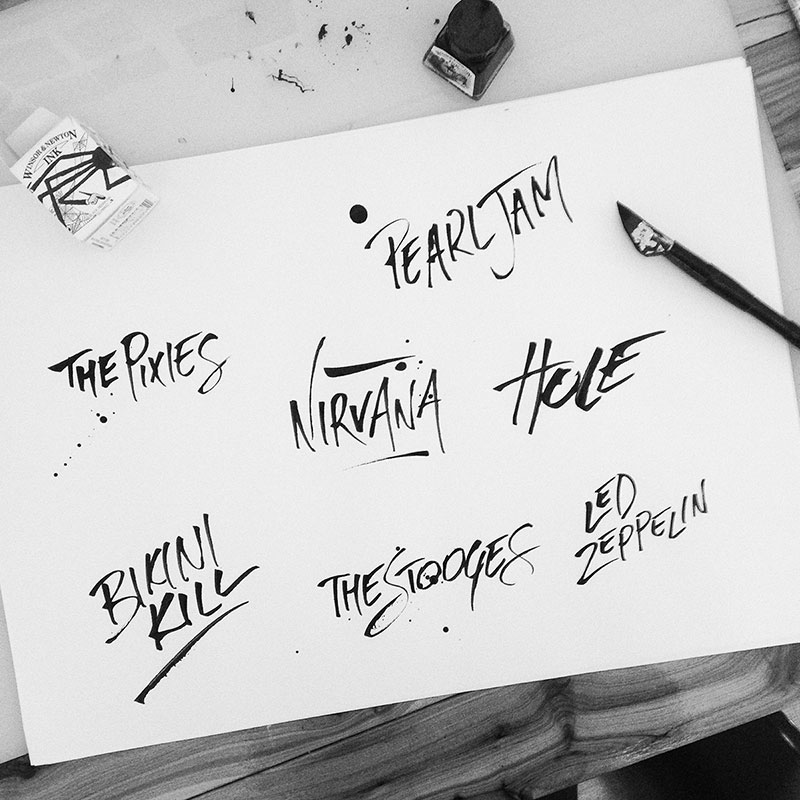 WINSOR & NEWTON
INK
PEARL JAM
THE PIXIES
NIRVANA
HOLE
BIKINI
KILL
THE STOOGES
LED
ZEPPELIN